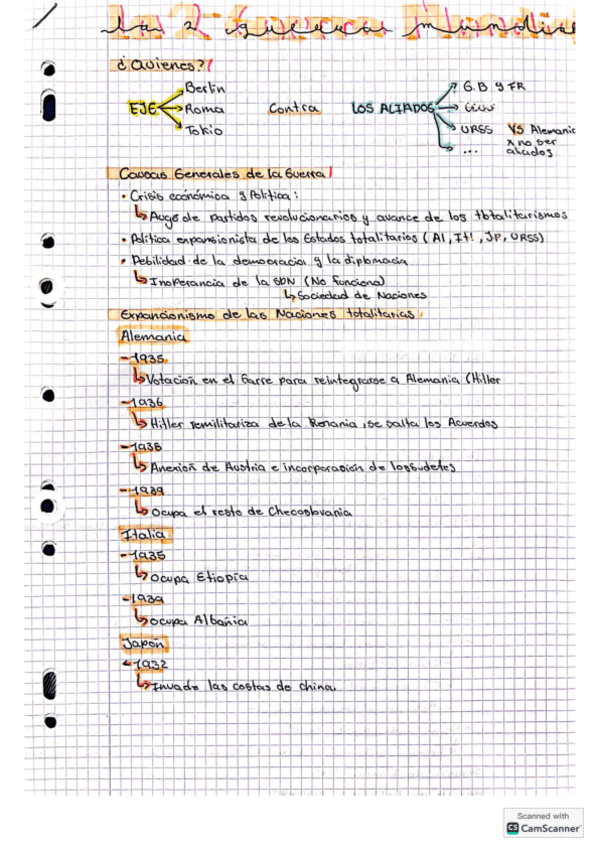 La 2 guerra Mundial
¿Quienes?
Berlin
EJE Roma Contra LOS ALIADOS
Tokio
G.B y FR
EEUU
URSS VS Alemania
x no ser
aliados
...
Causas Generales de la Guerra
• Crisis económica y Política:
Auge de partidos revolucionarios y avance de los totalitarismos
• Política expansionista de los Estados totalitarios (Al, It!, JP, URSS)
• Debilidad de la democracia y la diplomacia
Inoperancia de la SDN (No funciona)
Sociedad de Naciones
Expancionismo de las Naciones totalitarias.
Alemania
-1935
Votación en el Sarre para reintegrarse a Alemania (Hiller
-1936
Hiller remilitariza de la Renania, se salta los Acuerdos
-1938
Anexión de Austria e incorporación de los sudetes
-1939
Ocupa el resto de Checoslovania
Italia
-1935
Ocupa Etiopía
-1939
Ocupa Albania
Japón
-1932
Invade las costas de china.
Scanned with
CS CamScanner